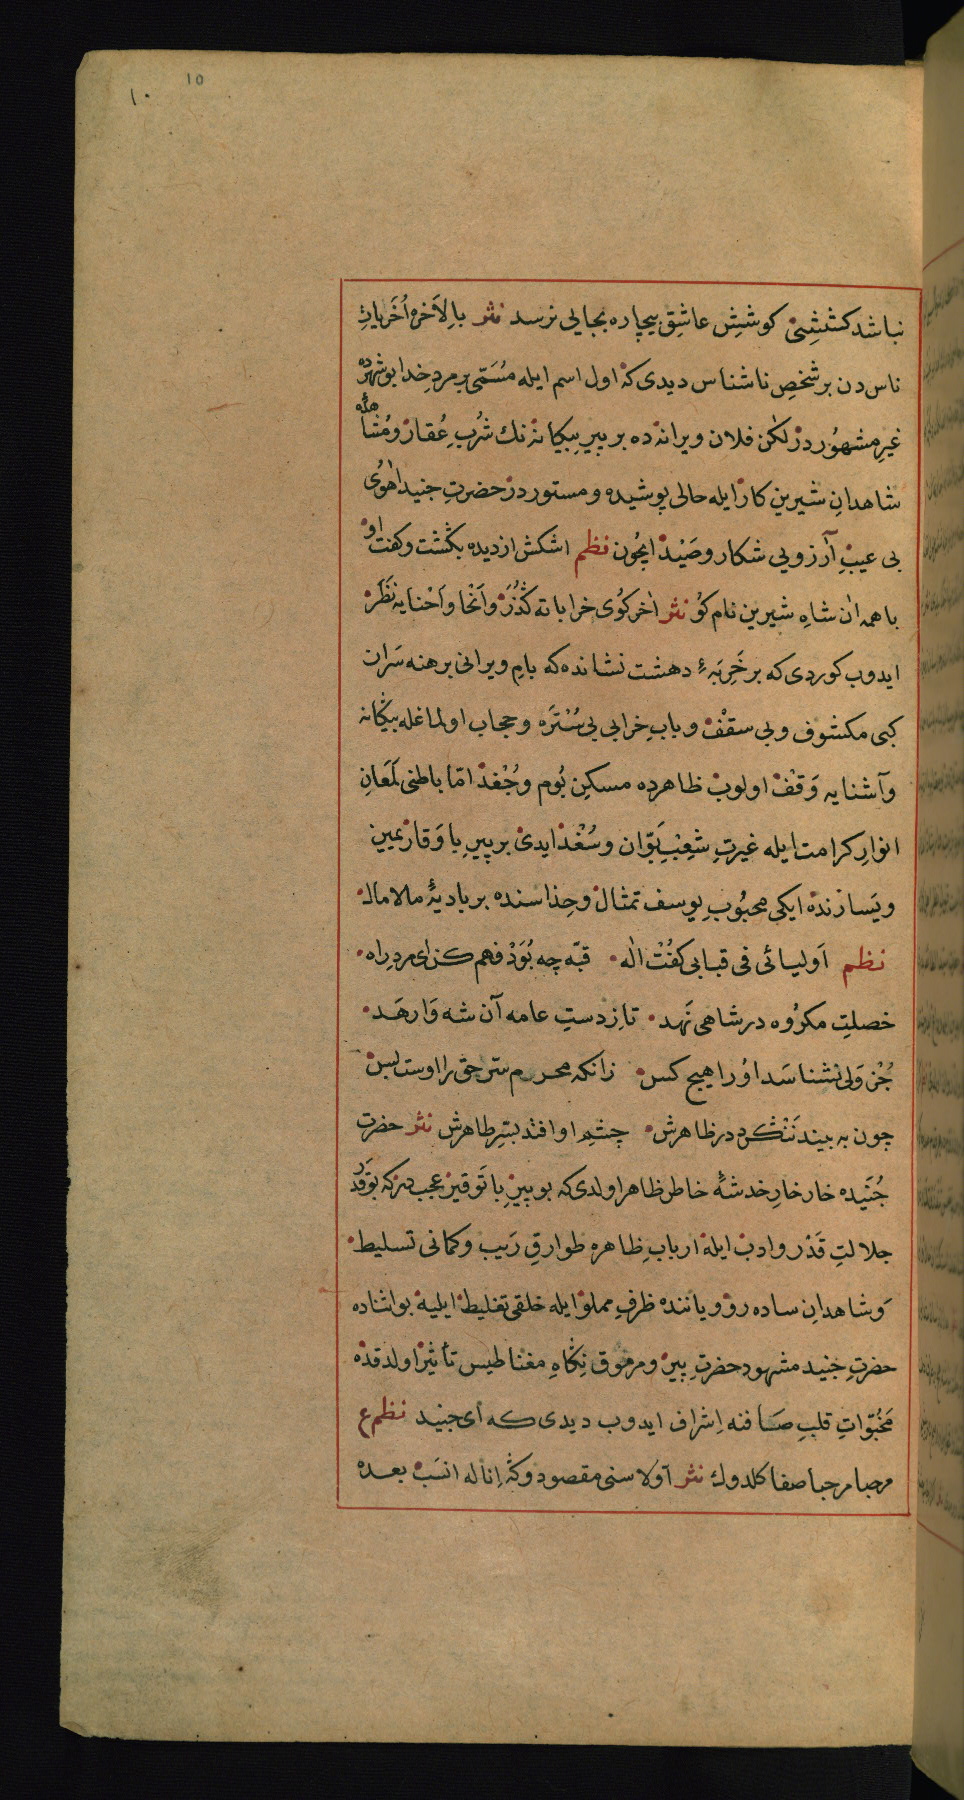 ۱۰
۱۵
نباشد كششِئ كوشش عاشق بیچاره بجایی نرسد نثر باِلآخره اُخَریاتِ
ناس دن بر شخصِ ناشناس دیدی كه اول اسم ایله مُسَمّی بر مردِ خدا بو شهرده
غیرِ مشهوُردر لكن فلان ویرانه ده بر پیرِ بیكانه نك شُربِ عُقار ومُشاهدُه
شاهدانِ شیرین كار ایله حالی پوشیده و مستوردر حضرتِ جنید اهوُی
بی عیبِ آرزویی شكار وصَیْد ایچون نظم اشكش از دیده بكشت وكفت او
با همه ان شاهِ شیرین نام كوُ نثر اخر كوُی خراباته كُذَرْ وانحا واَحْنایه نَظَر
ایدوب كوردی كه بر خَرِبَهٔ دهشت نشانده كه بامِ ویرانی برهنه سَران
كبی مكشوف وبی سقف وبابِ خرابی بی سُتْرَه وحجاب اولماغله بیكانه
وآشنایه وَقْف اولوب ظاهرده مسكنِ بُوم وجُغد امّا باطنی لَمَعَانِ
انوارِ كرامت ایله غیرتِ شِعْبِ بَوّان وسُغْد ایدی بر پیرِ با وَقار یمین
ویَسارنده ایكی محبُوبِ یوسف تمثال وحِذاسنده بر بادیهٔ مالامال
نظم اَولیائی فی قبابی كفُت اله قبّه چه بُوَد فهم كن ای مردِ راه
خصلتِ مكرُوه در شاهی نَهد تا زدستِ عامه آن شه وَا رهَد
جُز وَلی نشناسَد اوُرا هیچ كس زانكه محرم سرّ حق را اوست بس
چون به بیند نَنْكرد در ظاهرش چشم او افتد بسِرِ طاهرش نثر حضرت
جُنَیده خار خارِ خدشهٔ خاطر ظاهر اولدی كه بو پیرِ با تَوقیر عجب در كه بو قَدر
جلالتِ قَدْر وادب ایله اربابِ ظاهره طوارقِ رَیب وكمانی تسلیط
وَشاهدانِ ساده رو ویاننده ظرفِ مملو ایله خلقی تغلیط ایلیه بو اثناده
حضرتِ جنید مشهودِ حضرتِ پیر ومرموقِ نِكاهِ مغناطیس تأثیر اولدقده
مَخُبّواتِ قلبِ صافنه اِشراف ایدوب دیدی كه ای جنید نظم ع
مرحبا مرحبا صفا كلدوك نثر آولا سنی مقصودوكه اناله انسَب بعده